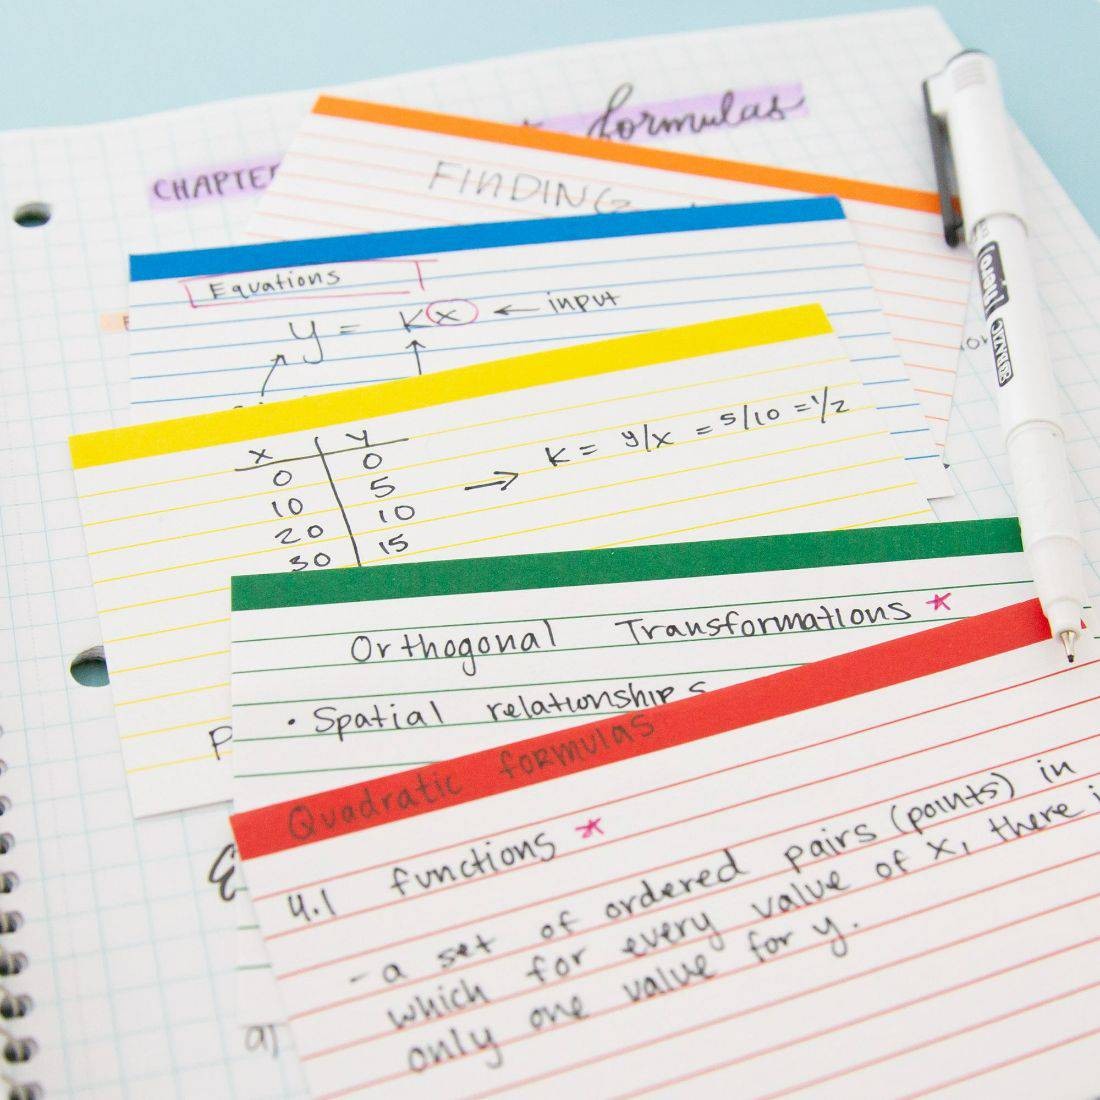 formulas
CHAPTER
FINDING
Equations
y = Kx ← input
x y
0 0
10 5
20 10
30 15
→ K = y/x = 5/10 = 1/2
Orthogonal Transformations *
• Spatial relationships
Quadratic formulas
4.1 functions *
- a set of ordered pairs (points) in
which for every value of x, there i
only one value for y.
a)